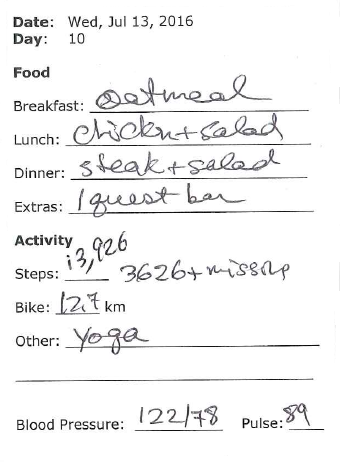 Date: Wed, Jul 13, 2016
Day: 10
Food
Breakfast: Oatmeal
Lunch: Chickn + salad
Dinner: steak + salad
Extras: 1 quest bar
Activity
Steps: 13,926 3626 +
Bike: 12.7 km
Other: Yoga
Blood Pressure: 122/78 Pulse: 89